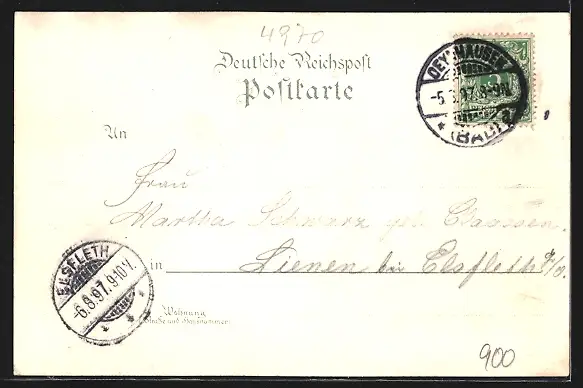 4970
Deutsche Reichspost
Postkarte
OEYNHAUSEN
-5.8.97.8-9N.
* (BAD) a
An
Frau
Martha Schwarz geb. Claassen.
in Lienen bei Elsfleth a/W.
ELSFLETH
-6.8.97.9-10V.
* *
Wohnung
(Straße und Hausnummer)
900